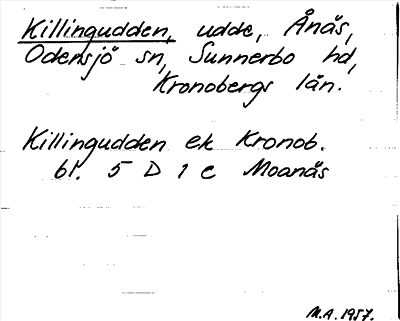 Killingudden, udde, Ånäs,
Odensjö sn, Sunnerbo hd,
Kronobergs län.
Killingudden ek Kronob.
bl. 5 D 1 e Moanäs
M.A. 1957.